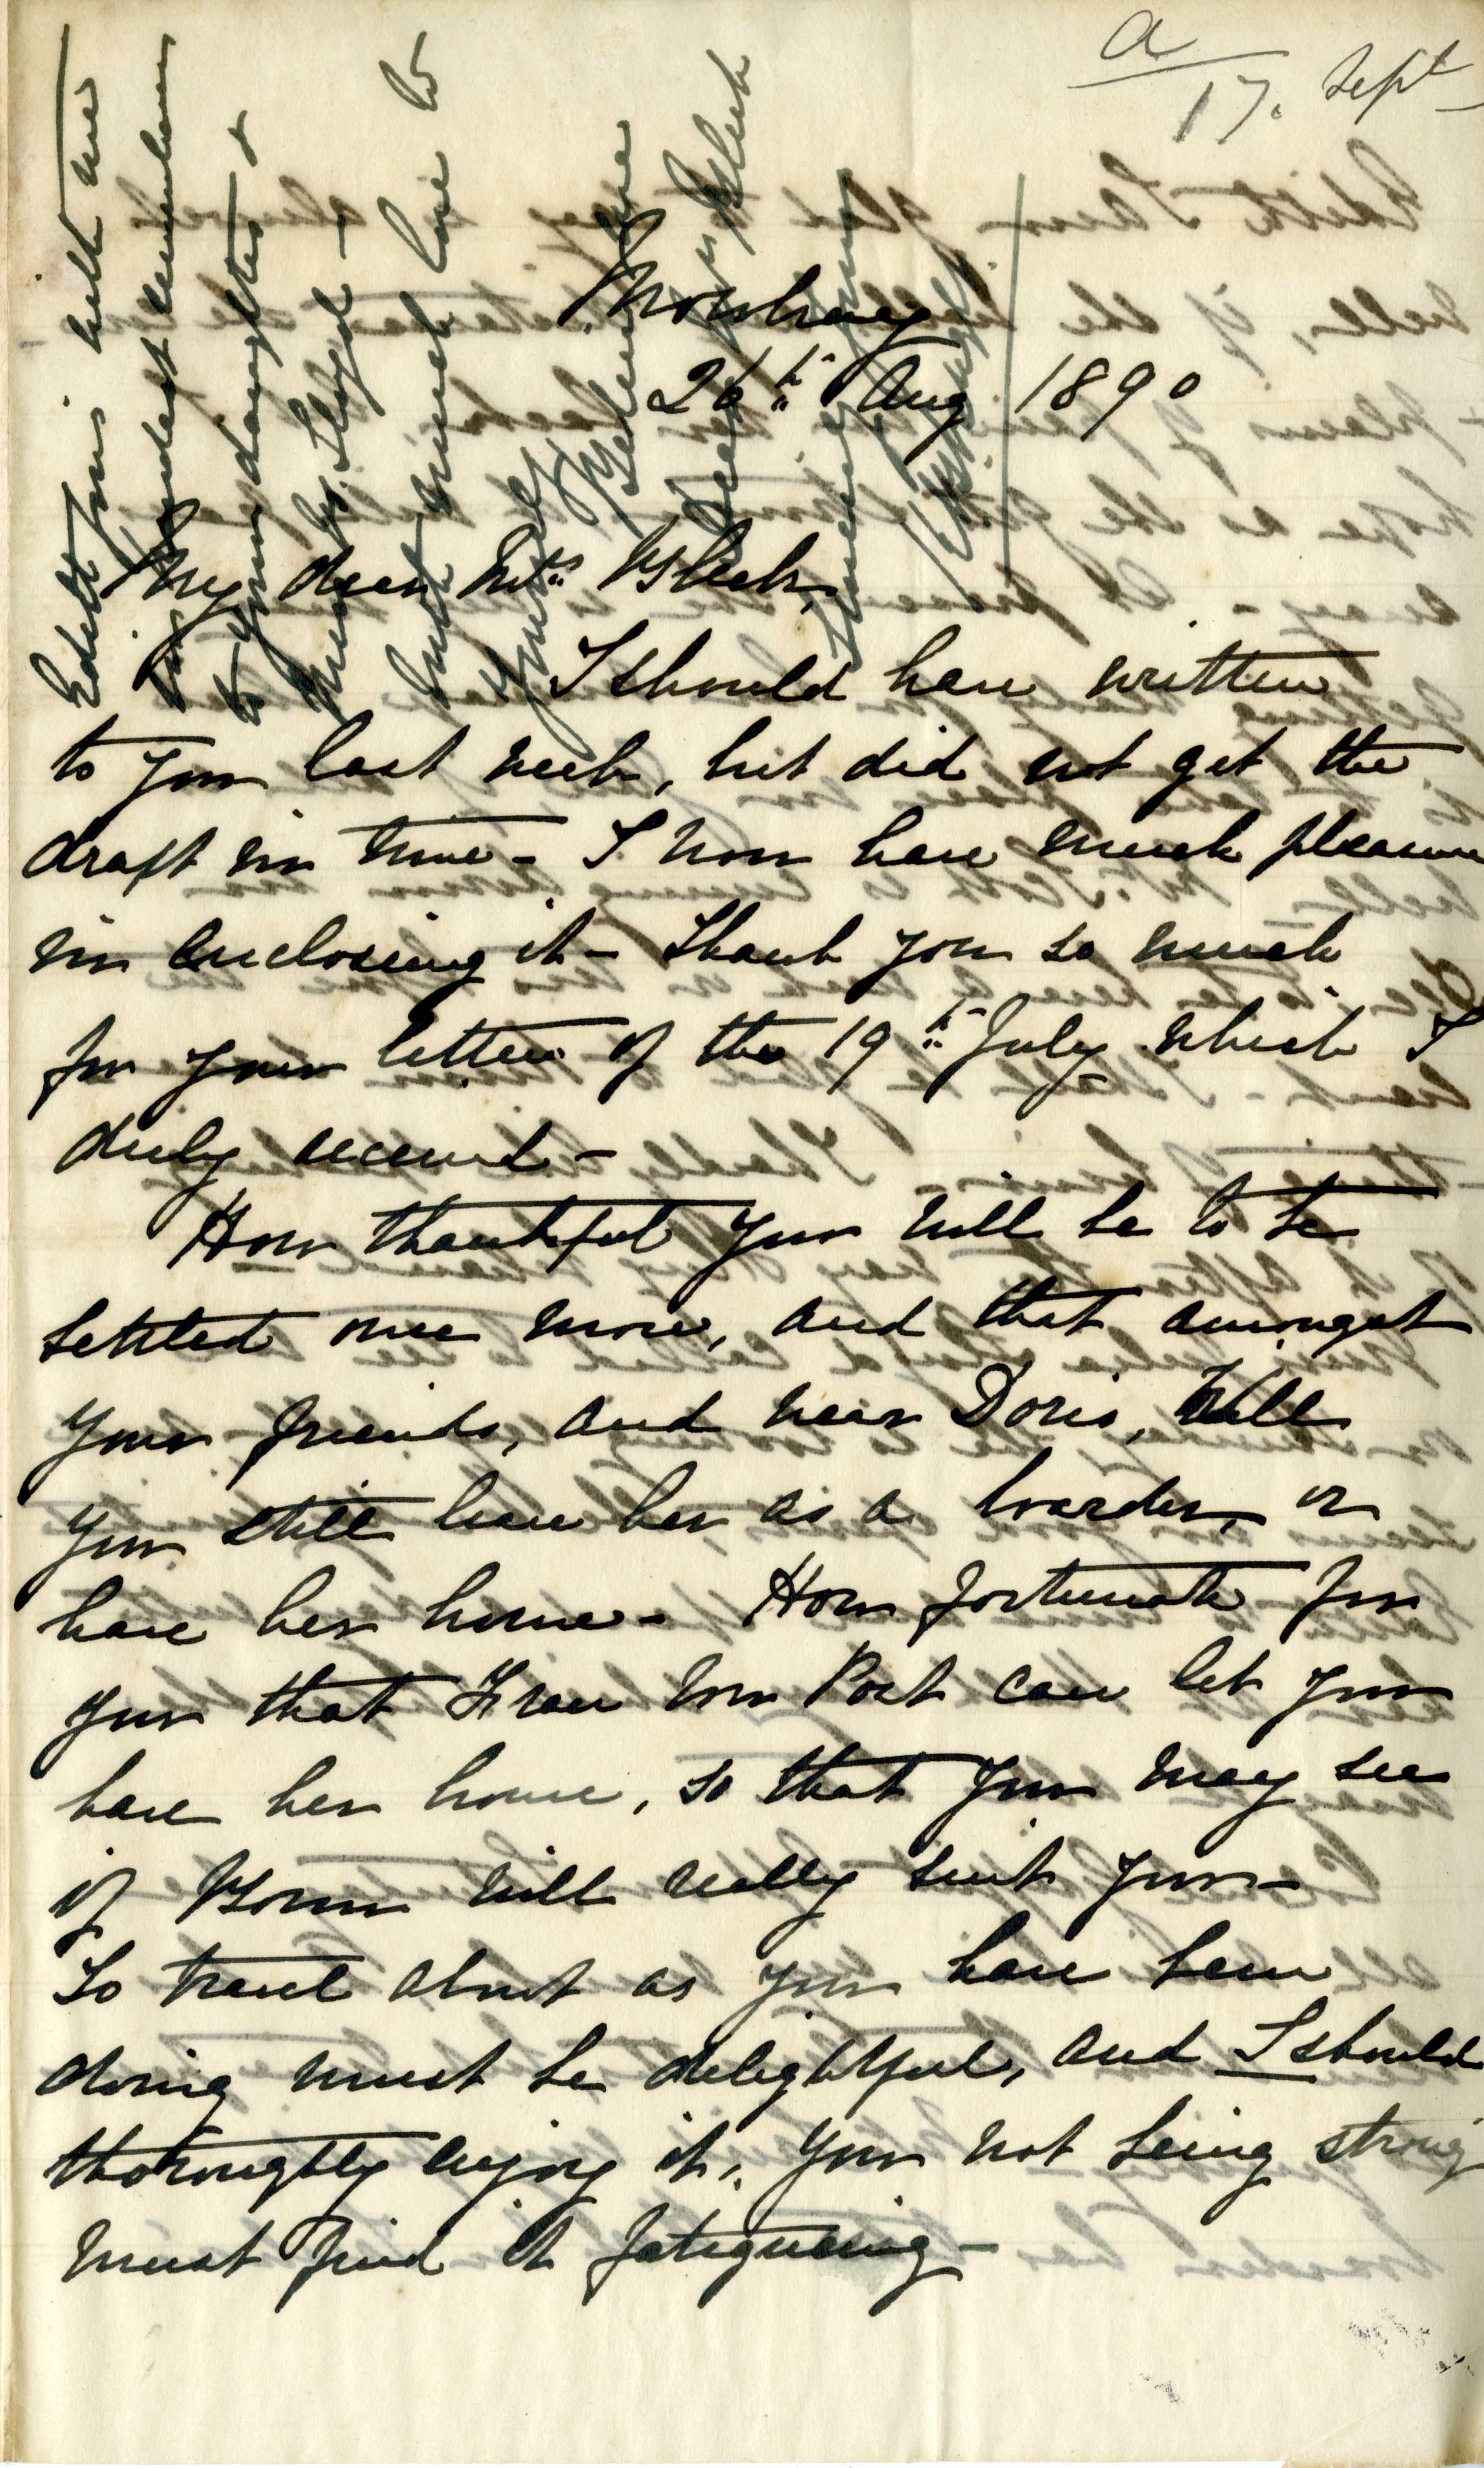 a
17. Sept
Mowbray
26th Aug 1890
My dear Mrs Bleek,
I should have written
to you last week, but did not get the
draft in time - I now have much pleasure
in enclosing it - Thank you so much
for your letter of the 19th July which I
duly received -
How thankful you will be to be
settled once more, and that amongst
your friends, and near Doris, Will
you still leave her as a boarder, or
have her home - How fortunate for
you that Frau von Post can let you
have her house, so that you may see
if Bonn will really suit you -
To travel about as you have been
doing must be delightful, and I should
thoroughly enjoy it, you not being strong
must find it fatigueing -
Edith joins with me
in kindest remembrances
to your daughters &
Miss Lloyd -
and much love to
yourself
Believe me
Dear Mrs Bleek
Sincerely yours